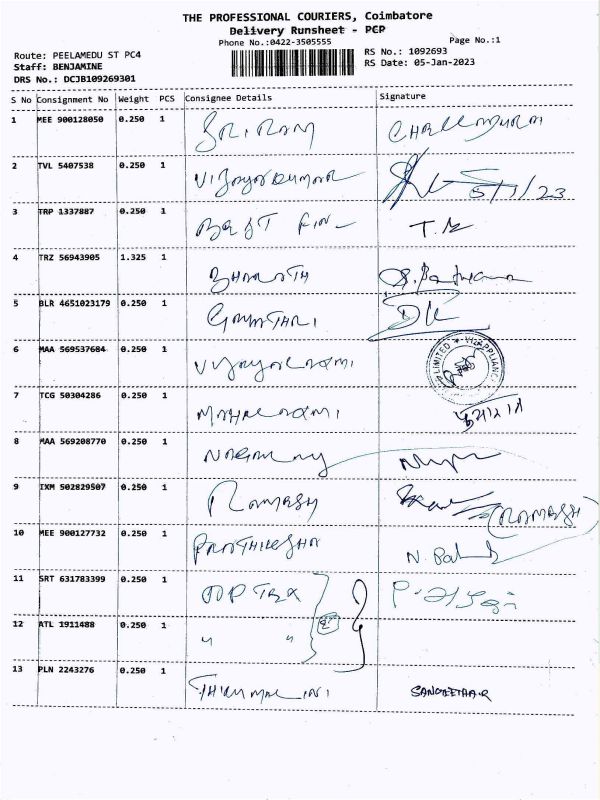 THE PROFESSIONAL COURIERS, Coimbatore
Delivery Runsheet - PCP
Phone No.:0422-3505555
Page No.:1
Route: PEELAMEDU ST PC4
Staff: BENJAMINE
DRS No.: DCJB109269301
RS No.: 1092693
RS Date: 05-Jan-2023
S No Consignment No Weight PCS Consignee Details Signature
1 MEE 900128050 0.250 1 SRIRAM
2 TVL 5407538 0.250 1 VIJAYAKUMAR 5/1/23
3 TRP 1337887 0.250 1 BEST FIN
4 TRZ 56943905 1.325 1 BHARATH
5 BLR 4651023179 0.250 1 GAYATHRI
6 MAA 569537684 0.250 1 VIJAYALAXMI LIMITED
7 TCG 50304286 0.250 1 MAHALAXMI
8 MAA 569208770 0.250 1
9 IXM 502829507 0.250 1 RAMESH (RAMESH)
10 MEE 900127732 0.250 1
11 SRT 631783399 0.250 1
12 ATL 1911488 0.250 1 " "
13 PLN 2243276 0.250 1 SANGEETHA.R